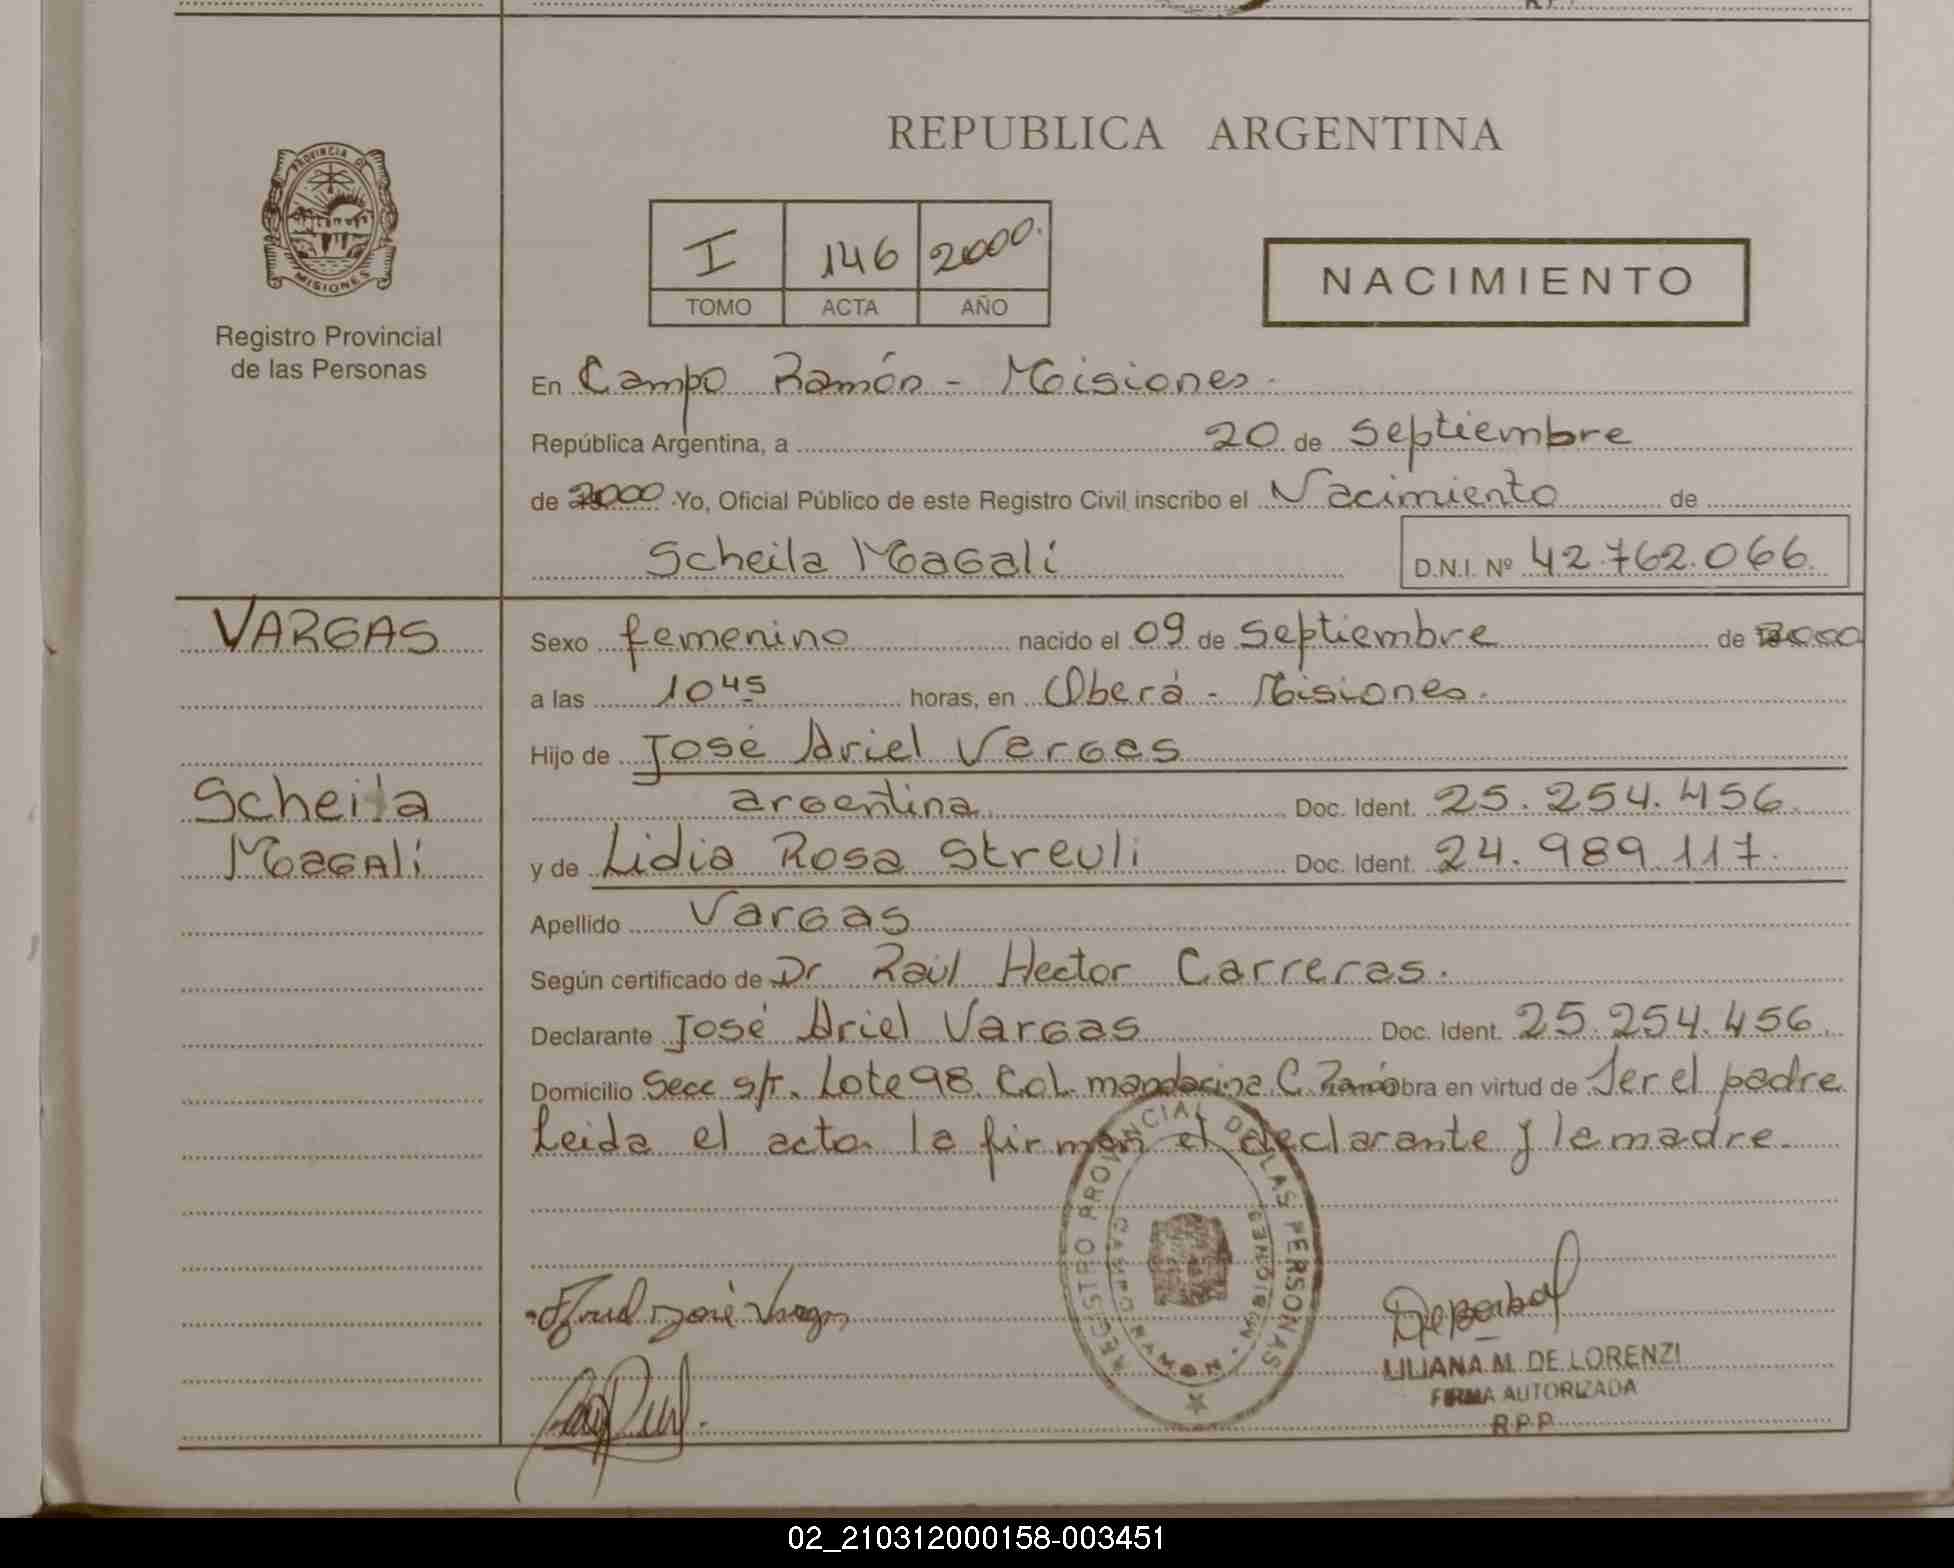 R.P.P.
REPUBLICA ARGENTINA
PROVINCIA DE
MISIONES
Registro Provincial
de las Personas
I 146 2000.
TOMO ACTA AÑO
NACIMIENTO
En Campo Ramón - Misiones.
República Argentina, a 20 de Septiembre
de 2000 Yo, Oficial Público de este Registro Civil inscribo el Nacimiento de
Scheila Magalí D.N.I. Nº 42.762.066
VARGAS
Scheila
Magalí
Sexo femenino nacido el 09 de Septiembre de 2000
a las 10 45 horas, en Oberá - Misiones.
Hijo de José Ariel Vargas
argentina Doc. Ident. 25.254.456
y de Lidia Rosa Streuli Doc. Ident. 24.989.117.
Apellido Vargas
Según certificado de Dr Raúl Hector Carreras.
Declarante José Ariel Vargas Doc. Ident. 25.254.456
Domicilio Secc s/r. Lote 98. Col. mandarina C. Ramón obra en virtud de Ser el padre
Leida el acta la firman el declarante y la madre
REGISTRO PROVINCIAL DE LAS PERSONAS
CAMPO RAMON - MISIONES
LILIANA M. DE LORENZI
FIRMA AUTORIZADA
R.P.P.
02_210312000158-003451